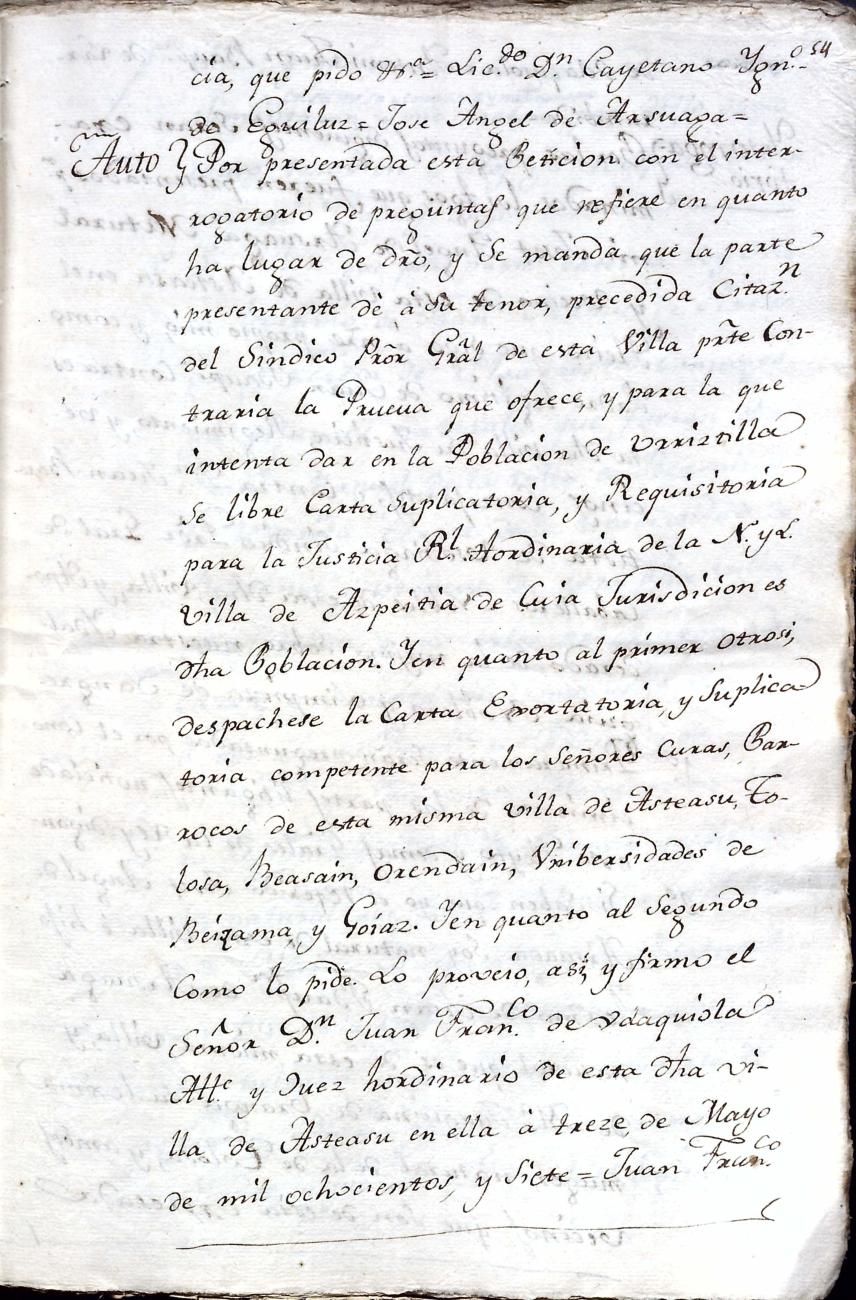 54
cia, que pido &rª = Lic.do Dn. Cayetano Ygn.o
de Eguiluz = Jose Angel de Arsuaga =
Auto Y Por presentada esta Peticion con el inter-
rogatorio de preguntas que refiere en quanto
ha lugar de dr̃o, y se manda que la parte
presentante dè à su tenor, precedida Citaz.n
del Sindico Pr̃or Gr̃al de esta Villa pr̃te Con-
traria la Prueva que ofrece, y para la que
intenta dar en la Poblacion de Vrriztilla
se libre Carta Suplicatoria, y Requisitoria
para la Justicia Rl. Hordinaria de la N. y L.
villa de Azpeitia de Cuia Jurisdicion es
dh̃a Poblacion. Yen quanto al primer otrosi,
despachese la Carta Exortatoria, y Suplica-
toria competente para los Señores Curas, Par-
rocos de esta misma villa de Asteasu, To-
losa, Beasain, Orendain, Vnibersidades de
Beizama y Goiaz. Yen quanto al Segundo
Como lo pide. Lo proveio, asi, y firmo el
Señor Dn. Juan Fran.co de Vdaquiola
Alle. y Juez hordinario de esta dh̃a vi-
lla de Asteasu en ella à treze de Mayo
de mil ochocientos, y Siete = Juan Fran.co